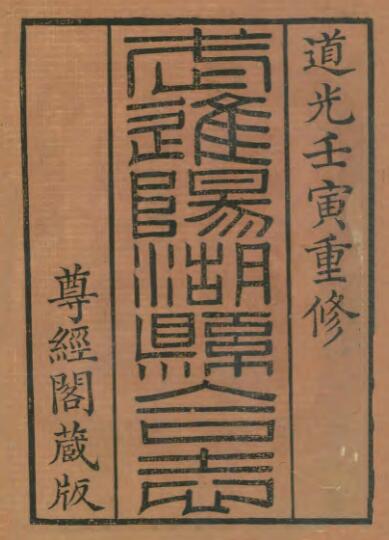 道光壬寅重修
武進陽湖縣合志
尊經閣藏版